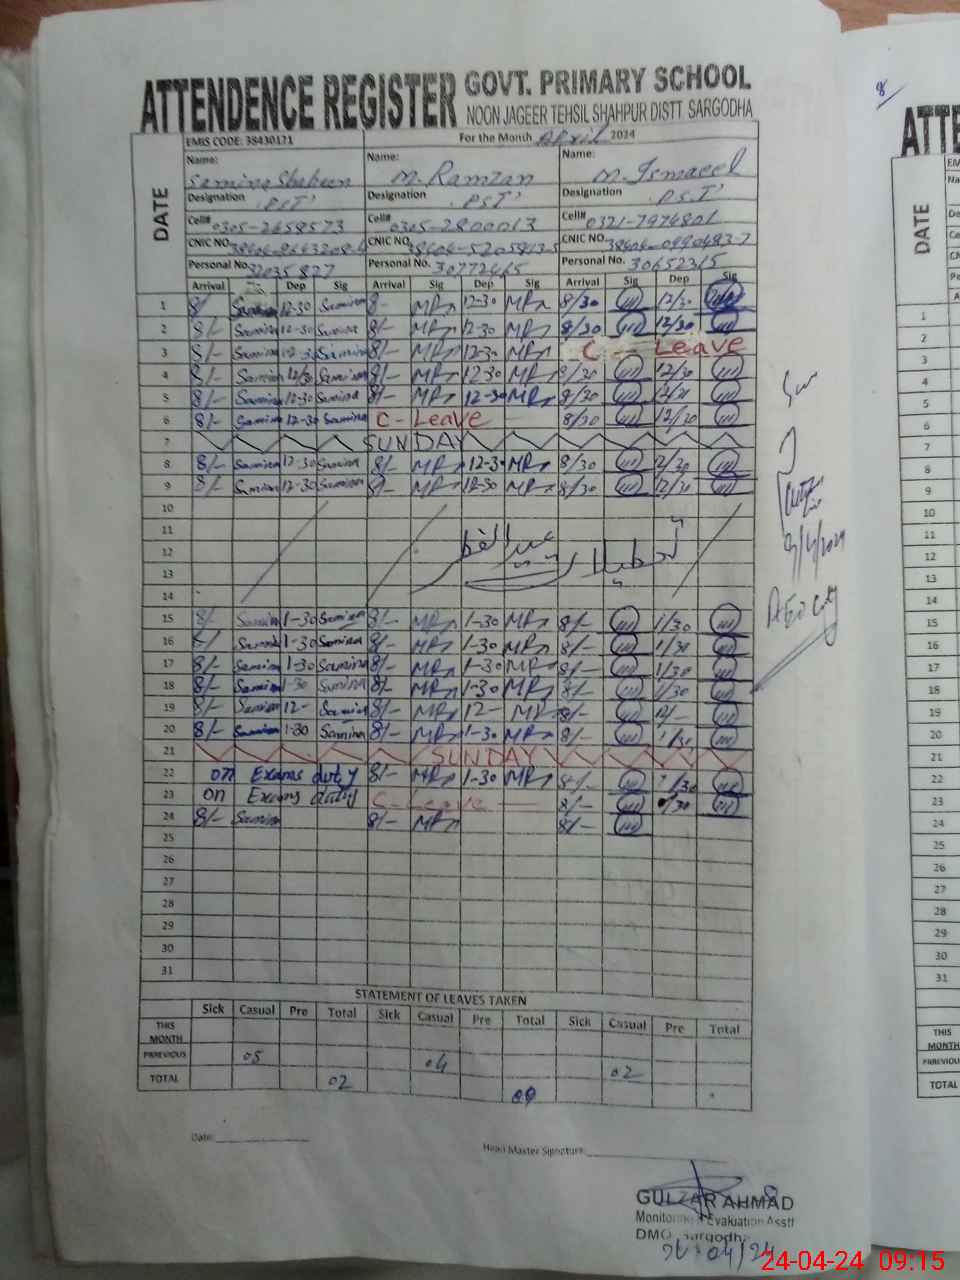 ATTENDENCE REGISTER GOVT. PRIMARY SCHOOL
NOON JAGEER TEHSIL SHAHPUR DISTT. SARGODHA
EMIS CODE: 38430171 For the Month April 2024
DATE
Name: Samina Shaheen Name: M. Ramzan Name: M. Ismaeel
Designation P.S.T' Designation P.S.T' Designation P.S.T'
Cell# 0305-2658573 Cell# 0305-2800013 Cell# 0321-7974801
CNIC NO. CNIC NO. CNIC NO. 38404-0490483-7
Personal No. 32035827 Personal No. 30772465 Personal No. 30652315
Arrival Dep Sig Arrival Sig Dep Sig Arrival Sig Dep Sig
1 8/- Samina 12-30 Samina 8/- MR 12-30 MR 8/30 12/30
2 8/- Samina 12-30 Samina 8/- MR 12-30 MR 8/30 12/30
3 8/- Samina 12-30 Samina 8/- MR 12-30 MR C - Leave
4 8/- Samina 12/30 Samina 8/- MR 12-30 MR 8/30 12/30
5 8/- Samina 12-30 Samina 8/- MR 12-30 MR 8/30 12/30
6 8/- Samina 12-30 Samina C - Leave 8/30 12/30
7 SUNDAY
8 8/- Samina 12-30 Samina 8/- MR 12-30 MR 8/30 12/30
9 8/- Samina 12-30 Samina 8/- MR 12-30 MR 8/30 12/30
10
11
12 تعطیلات عید الفطر
13
14
15 8/- Samina 1-30 Samina 8/- MR 1-30 MR 8/- 1/30
16 8/- Samina 1-30 Samina 8/- MR 1-30 MR 8/- 1/30
17 8/- Samina 1-30 Samina 8/- MR 1-30 MR 8/- 1/30
18 8/- Samina 1-30 Samina 8/- MR 1-30 MR 8/- 1/30
19 8/- Samina 12- Samina 8/- MR 12- MR 8/- 12/-
20 8/- Samina 1-30 Samina 8/- MR 1-30 MR 8/- 1/30
21 SUNDAY
22 on Exams duty 8/- MR 1-30 MR 8/- 1/30
23 on Exams duty C - Leave 8/- 1/30
24 8/- Samina 8/- MR 8/-
25
26
27
28
29
30
31
STATEMENT OF LEAVES TAKEN
Sick Casual Pre Total Sick Casual Pre Total Sick Casual Pre Total
THIS MONTH
PRREVIOUS 05 04 02
TOTAL 02
Date: Head Master Signature:
GULZAR AHMAD
Monitoring & Evaluation Asstt
DMO, Sargodha
24-04-24 09:15
8
ATTE
DATE
1
2
3
4
5
6
7
8
9
10
11
12
13
14
15
16
17
18
19
20
21
22
23
24
25
26
27
28
29
30
31
THIS
MONTH
PRREVIOUS
TOTAL